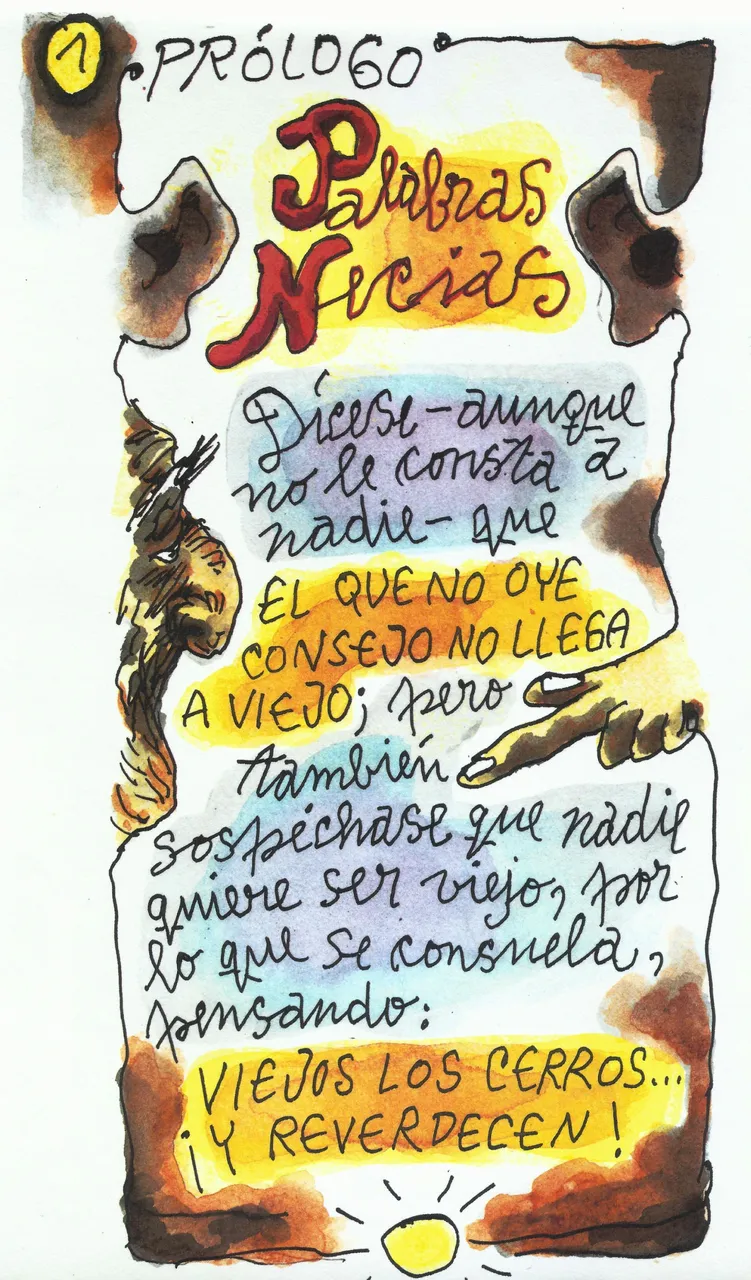 1
PRÓLOGO
Palabras
Necias
Dícese-aunque
no le consta a
nadie- que
EL QUE NO OYE
CONSEJO NO LLEGA
A VIEJO; pero
también
sospéchase que nadie
quiere ser viejo, por
lo que se consuela,
pensando:
VIEJOS LOS CERROS...
¡Y REVERDECEN!